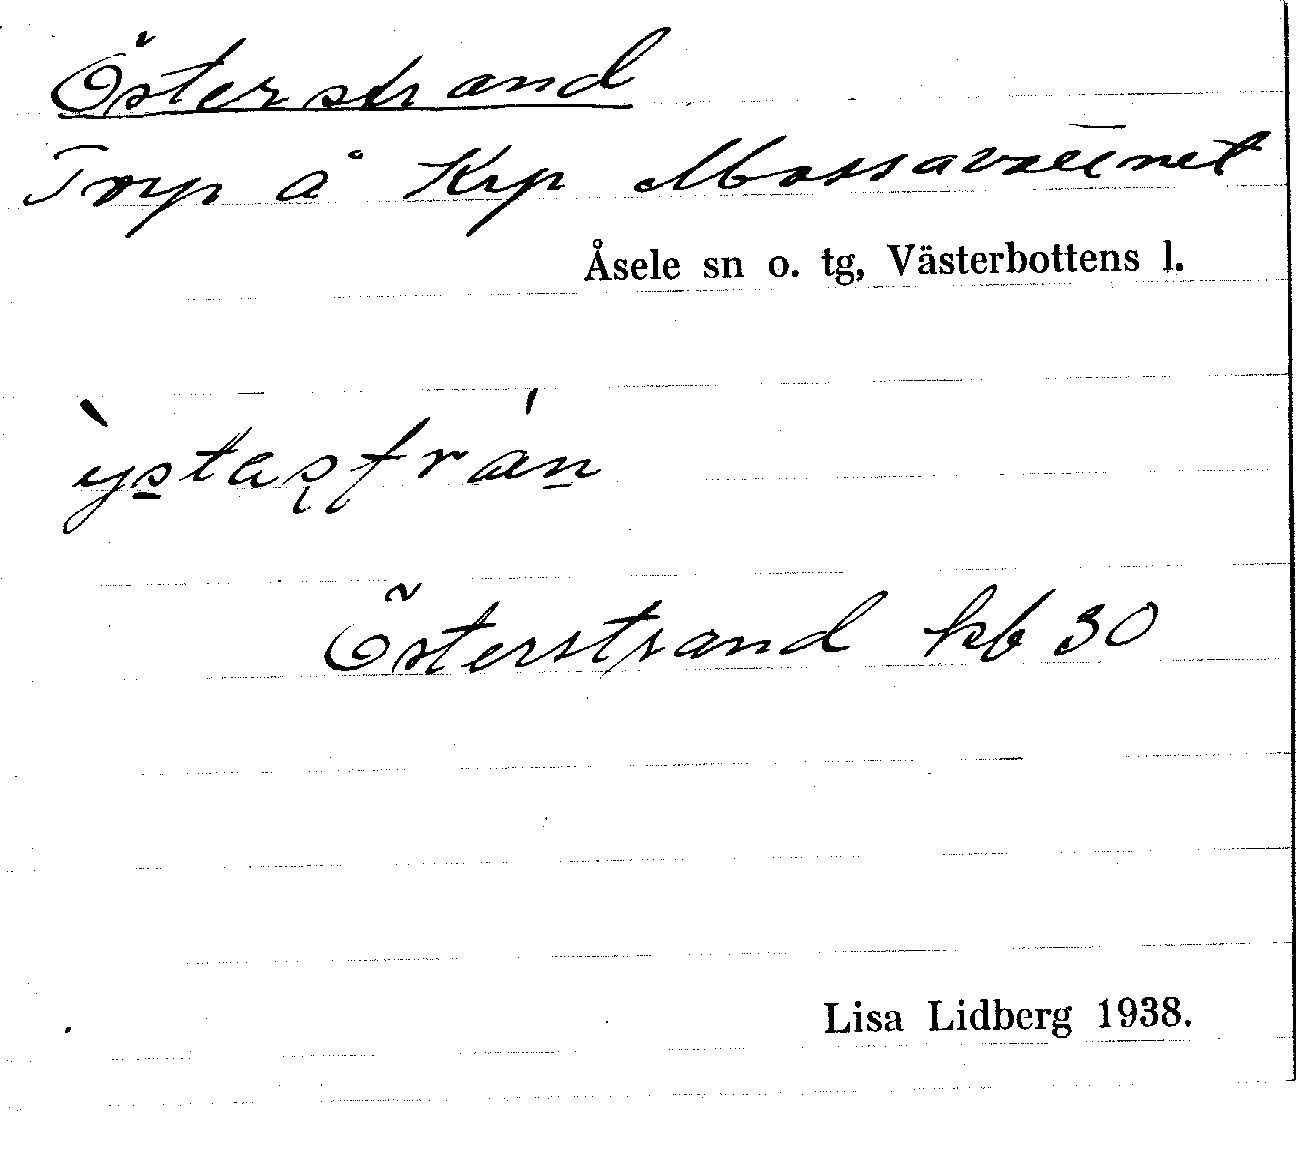 Österstrand
Torp å Krp Mossavattnet
Åsele sn o. tg, Västerbottens l.
Österstrand kb 30
Lisa Lidberg 1938.